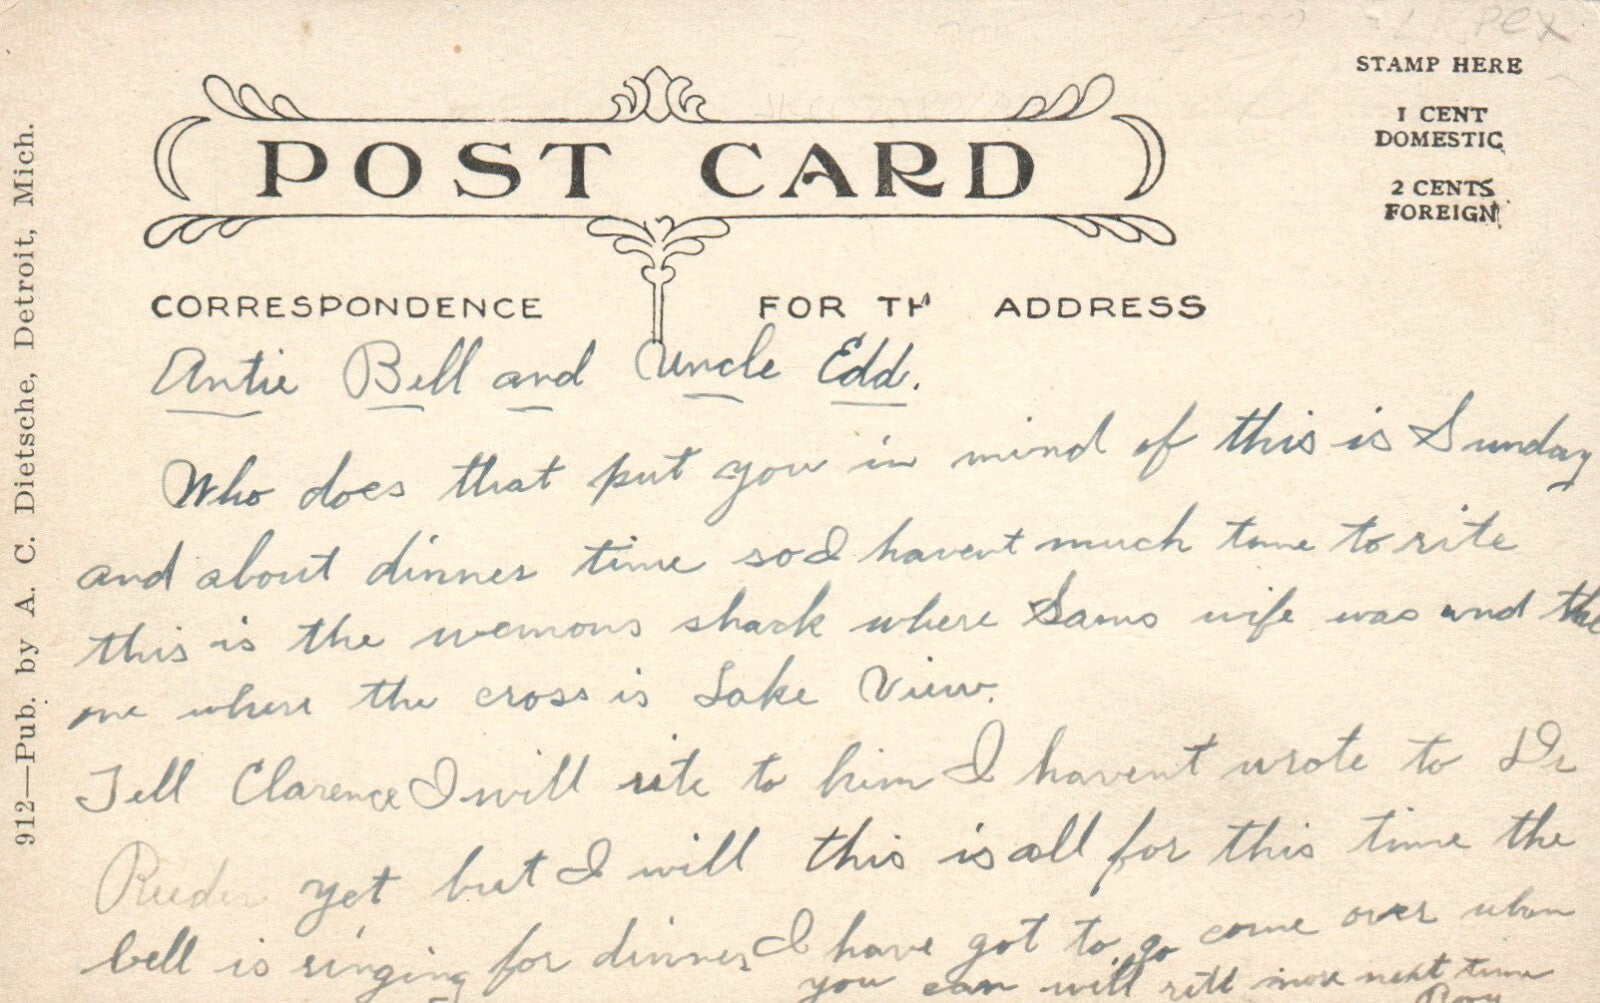 STAMP HERE
1 CENT
DOMESTIC
2 CENTS
FOREIGN
POST CARD
CORRESPONDENCE
FOR TH ADDRESS
912—Pub. by A. C. Dietsche, Detroit, Mich.
Antie Bell and Uncle Edd.
Who does that put you in mind of this is Sunday
and about dinner time so I havent much time to rite
this is the wemons shack where Sams wife was and the
one where the cross is Lake View.
Tell Clarence I will rite to him I havent wrote to Dr
Reeder yet but I will this is all for this time the
bell is ringing for dinner I have got to go come over when
you can will ritt more next time